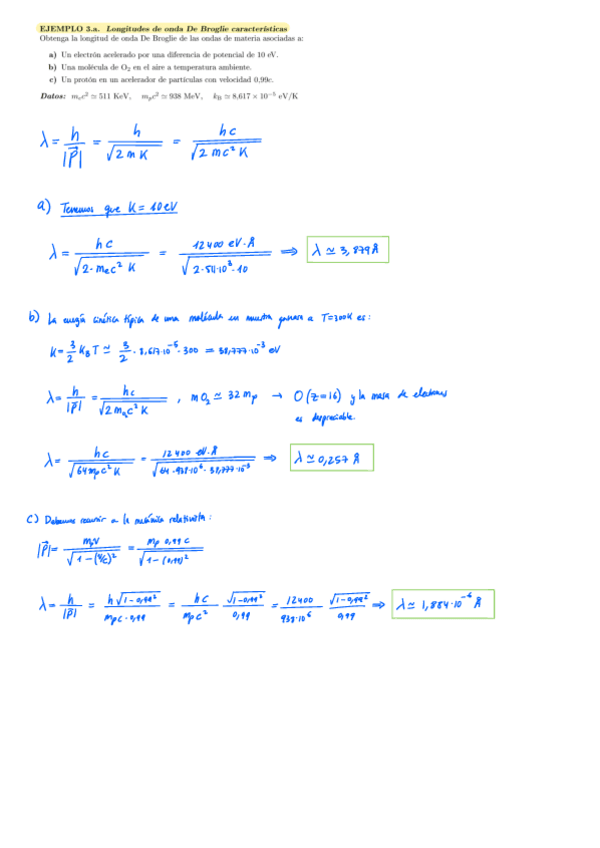 EJEMPLO 3.a. Longitudes de onda De Broglie características
Obtenga la longitud de onda De Broglie de las ondas de materia asociadas a:
a) Un electrón acelerado por una diferencia de potencial de 10 eV.
b) Una molécula de O₂ en el aire a temperatura ambiente.
c) Un protón en un acelerador de partículas con velocidad 0,99c.
Datos: mₑc² ≃ 511 KeV, mₚc² ≃ 938 MeV, k_B ≃ 8,617 × 10⁻⁵ eV/K
λ = h/|P⃗| = h/√(2mK) = hc/√(2mc²K)
a) Tenemos que K = 10 eV
λ = hc/√(2·mₑc² K) = 12400 eV·Å/√(2·511·10³·10) ⟹ λ ≃ 3,879 Å
b) La energía cinética típica de una molécula en muestra gaseosa a T=300K es:
K = 3/2 k_B T ≃ 3/2 · 8,617·10⁻⁵ · 300 = 38,777·10⁻³ eV
λ = h/|P⃗| = hc/√(2m₀₂c² K) , mO₂ ≃ 32 mₚ → O (Z=16) y la masa de electrones
es despreciable.
λ = hc/√(64mₚc² K) = 12400 eV·Å/√(64·938·10⁶·38,777·10⁻³) ⟹ λ ≃ 0,257 Å
c) Debemos recurrir a la mecánica relativista:
|P⃗| = mₚv/√(1-(v/c)²) = mₚ 0,99 c/√(1-(0,99)²)
λ = h/|P⃗| = h√(1-0,99²)/(mₚc·0,99) = hc/mₚc² √(1-0,99²)/0,99 = 12400/938·10⁶ √(1-0,99²)/0,99 ⟹ λ ≃ 1,884·10⁻⁶ Å